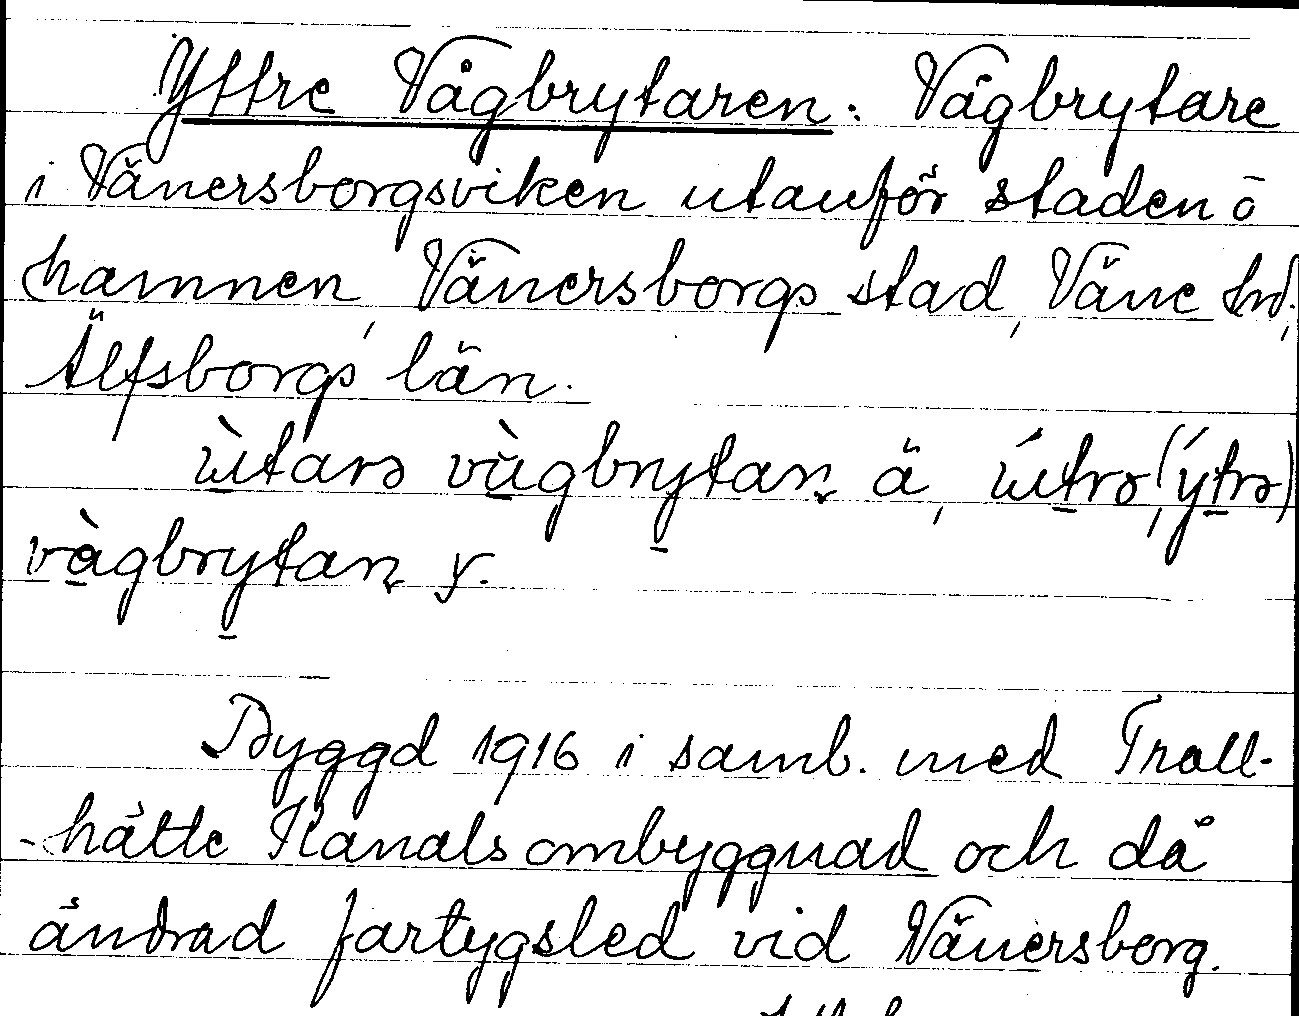 Yttre Vågbrytaren: Vågbrytare
i Vänersborgsviken utanför staden o
hamnen, Vänersborgs stad, Väne hd,
Älfsborgs län.
ùtarə vàgbrytaṇ ä, útrə, (ýtrə)
vàgbrytaṇ y.
Byggd 1916 i samb. med Troll-
-hätte Kanals ombyggnad och då
ändrad fartygsled vid Vänersborg.